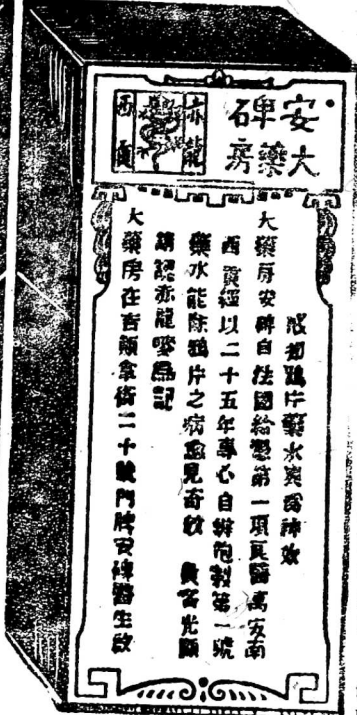 安碑石
大藥房
赤龍
西貢
鴉片藥水實為神效
大藥房安碑自 國給 第一項良醫寓安南
西貢經以二十五年專心自辦炮製第一號
藥水能除鴉片之病愈見奇效 貴客光顧
請認赤龍嘜為記
大藥房在吉 拿街二十號門牌安碑醫生啟